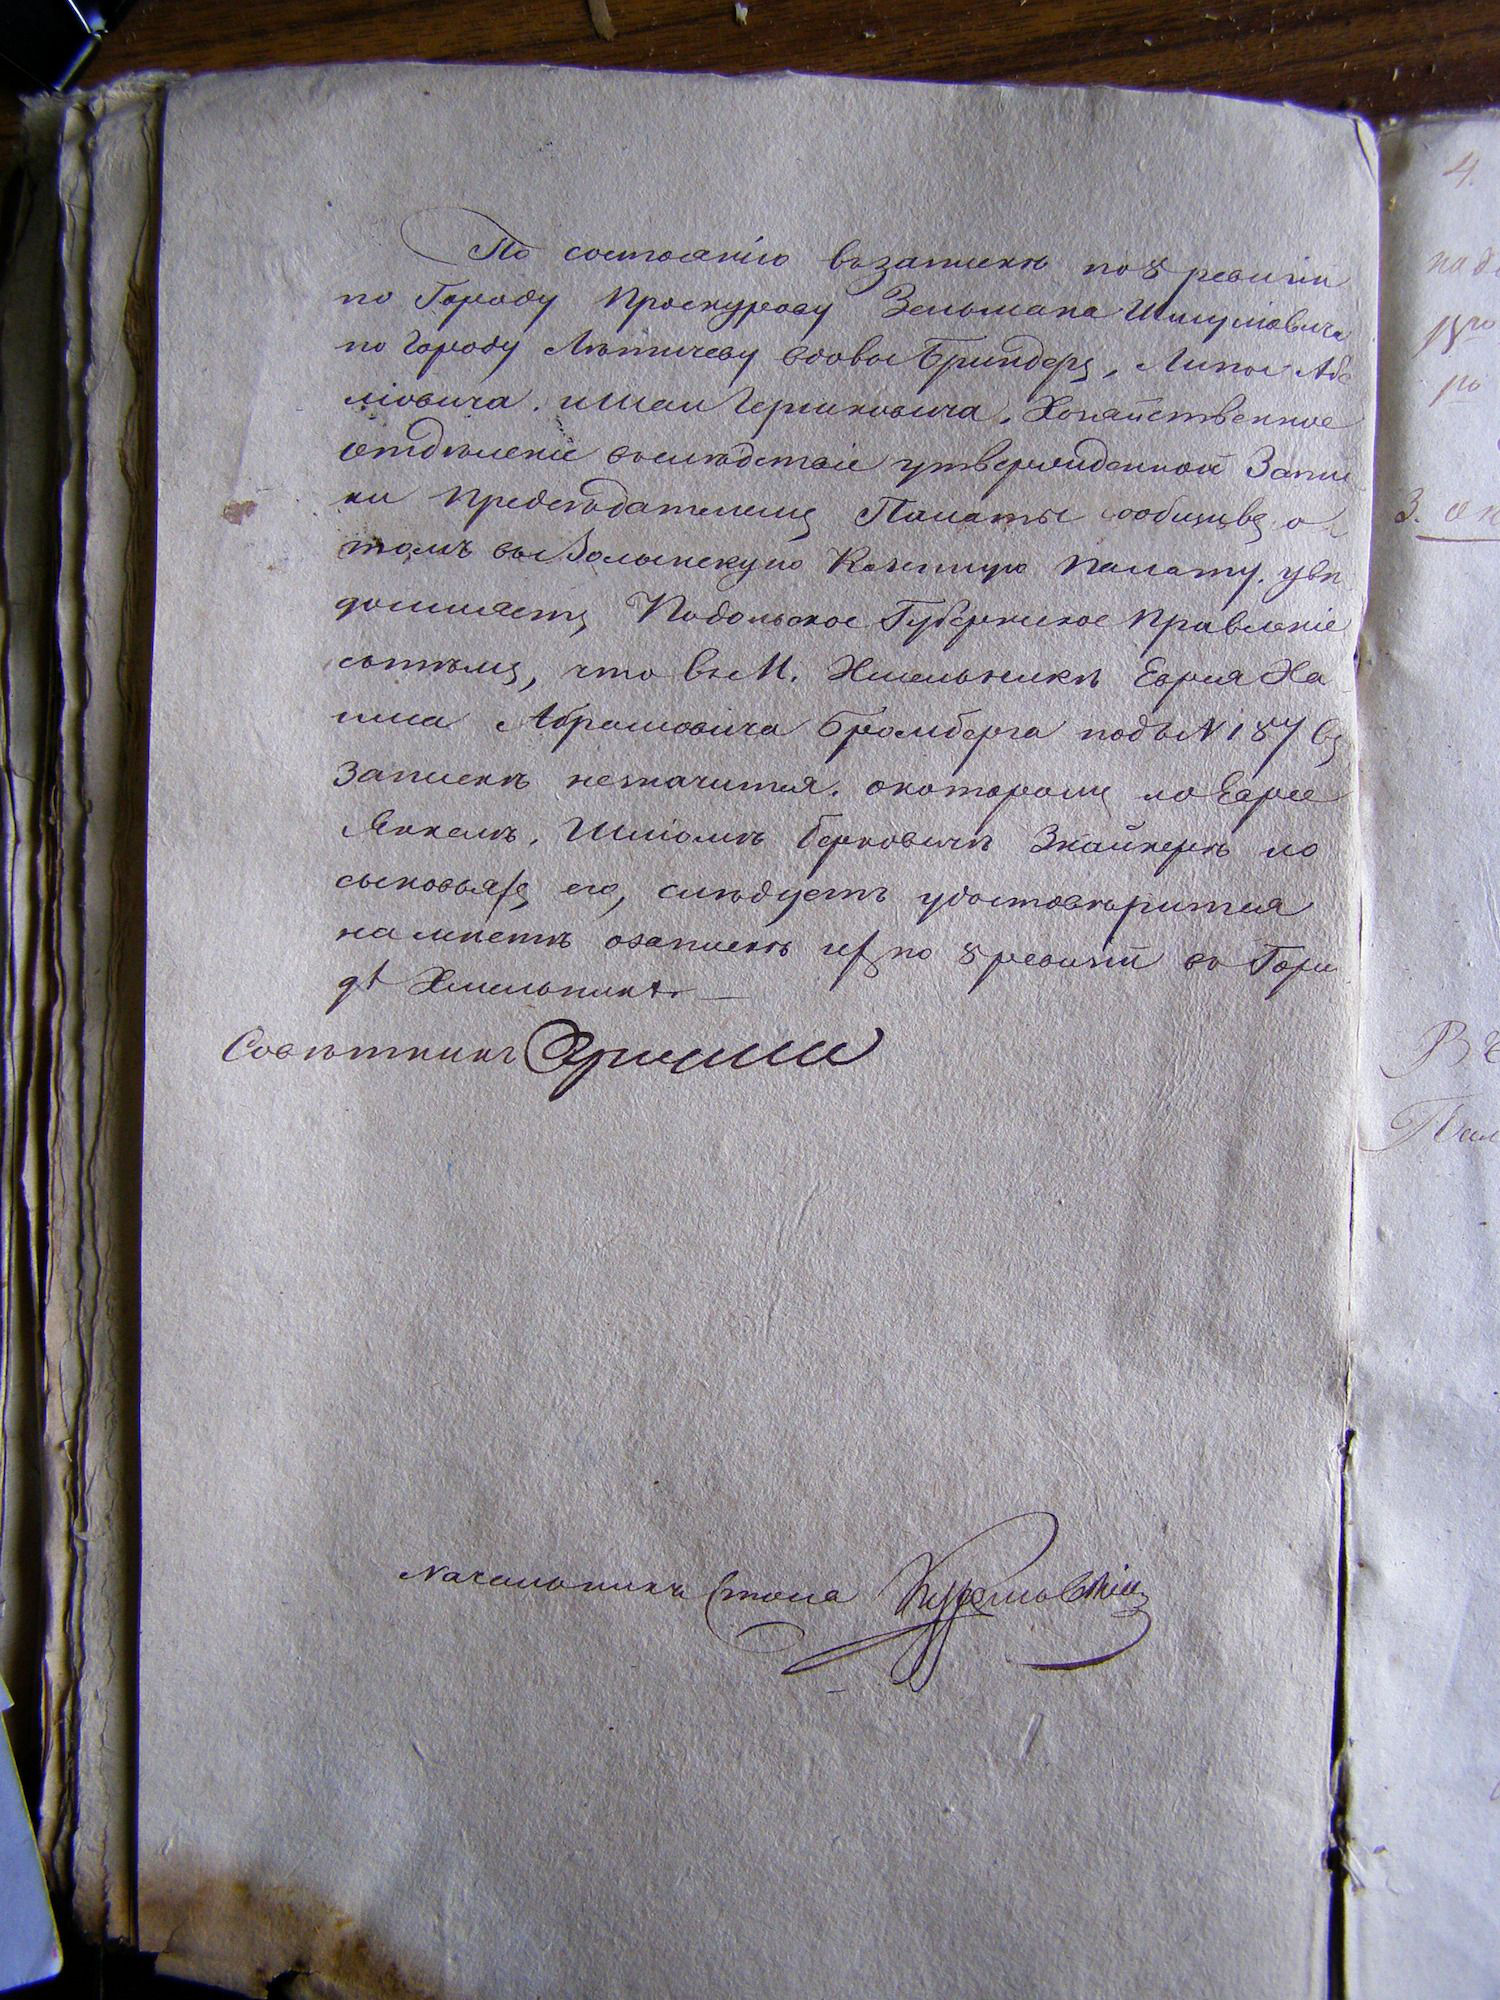 По состоянію въ запискѣ по 8 ревизіи
по Городу Проскурову Зельмана Шмуліовича
по Городу Лѣтичеву вдовы Бриндеръ, Липы Аб
міовича. и Гершковича, Хозяйственное
отдѣленіе вслѣдствіе утвержденной Запис
ки Предсѣдателемъ Палаты сообщивъ о
томъ въ Волынскую Казенную Палату. увѣ
домляетъ Подольское Губернское Правленіе
сътѣмъ, что въ М. Хмельникѣ Еврея Ха
има Абрамовича Бромберга подъ N 187 въ
запискѣ незначится. о которомъ ко Еврее
Янкелѣ, Шліомѣ Берковичѣ и
сыновьяхъ его, слѣдуетъ удостовѣрится
на мѣстѣ о запискѣ ихъ по 8 ревизіи въ Горо
дѣ Хмельникѣ.
Совѣтникъ
Начальникъ Стола
4.
3.
Въ